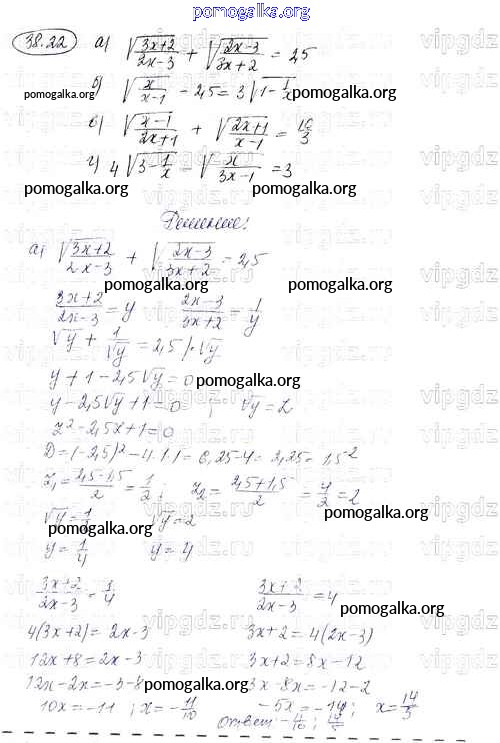 pomogalka.org
38.22 а) √(3x+2)/(2x-3) + √(2x-3)/(3x+2) = 2,5
pomogalka.org б) √x/(x-1) - 2,5 = 3√1-1/x pomogalka.org
в) √(x-1)/(2x+1) + √(2x+1)/(x-1) = 10/3
г) 4√3-1/x - √x/(3x-1) = 3
pomogalka.org pomogalka.org
Решение:
а) √(3x+2)/(2x-3) + √(2x-3)/(3x+2) = 2,5
pomogalka.org pomogalka.org
(3x+2)/(2x-3) = y (2x-3)/(3x+2) = 1/y
√y + 1/√y = 2,5 |·√y
y + 1 - 2,5√y = 0
pomogalka.org
y - 2,5√y + 1 = 0 ; √y = z
z² - 2,5x + 1 = 0
D = (-2,5)² - 4·1·1 = 6,25-4 = 2,25 = 1,5²
z₁ = (2,5-1,5)/2 = 1/2 ; z₂ = (2,5+1,5)/2 = 4/2 = 2
√y = 1/2 √y = 2
pomogalka.org pomogalka.org
y = 1/4 y = 4
(3x+2)/(2x-3) = 1/4 (3x+2)/(2x-3) = 4
pomogalka.org
4(3x+2) = 2x-3 3x+2 = 4(2x-3)
12x+8 = 2x-3 3x+2 = 8x-12
12x-2x = -3-8 3x-8x = -12-2
pomogalka.org
10x = -11 ; x = -11/10 -5x = -14 ; x = 14/5
Ответ: -11/10 ; 14/5